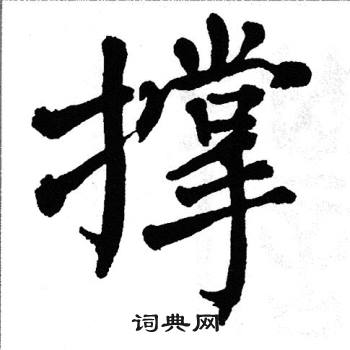 撑
词典网